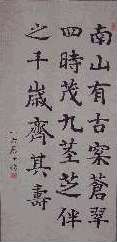 南山有古寀蒼翠
四時茂九莖芝伴
之千歲齊其壽